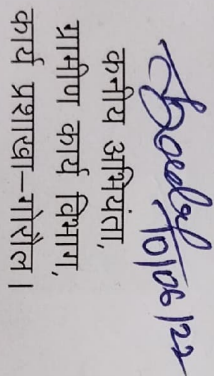 10/06/22
कनीय अभियंता,
ग्रामीण कार्य विभाग,
कार्य प्रशाखा–गोरौल।